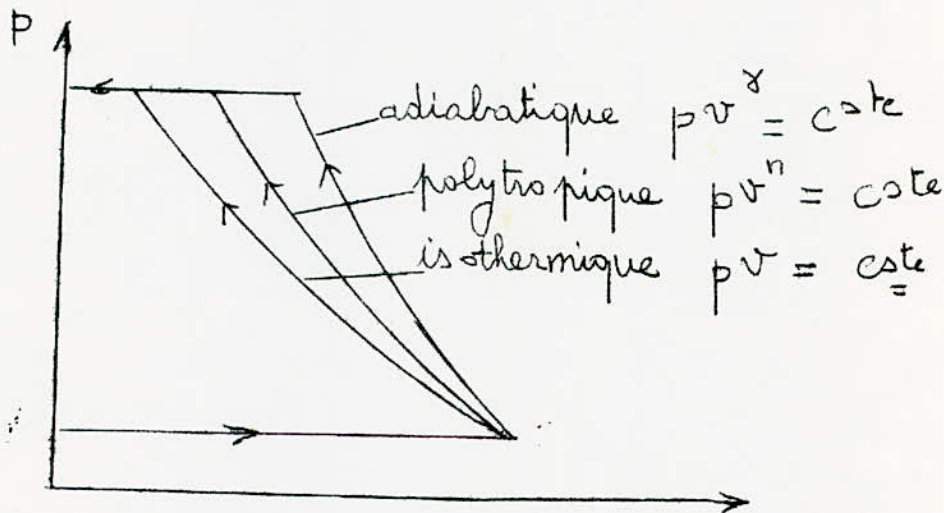 p
adiabatique pv^γ = c^ste
polytropique pv^n = cste
isothermique pv = cste